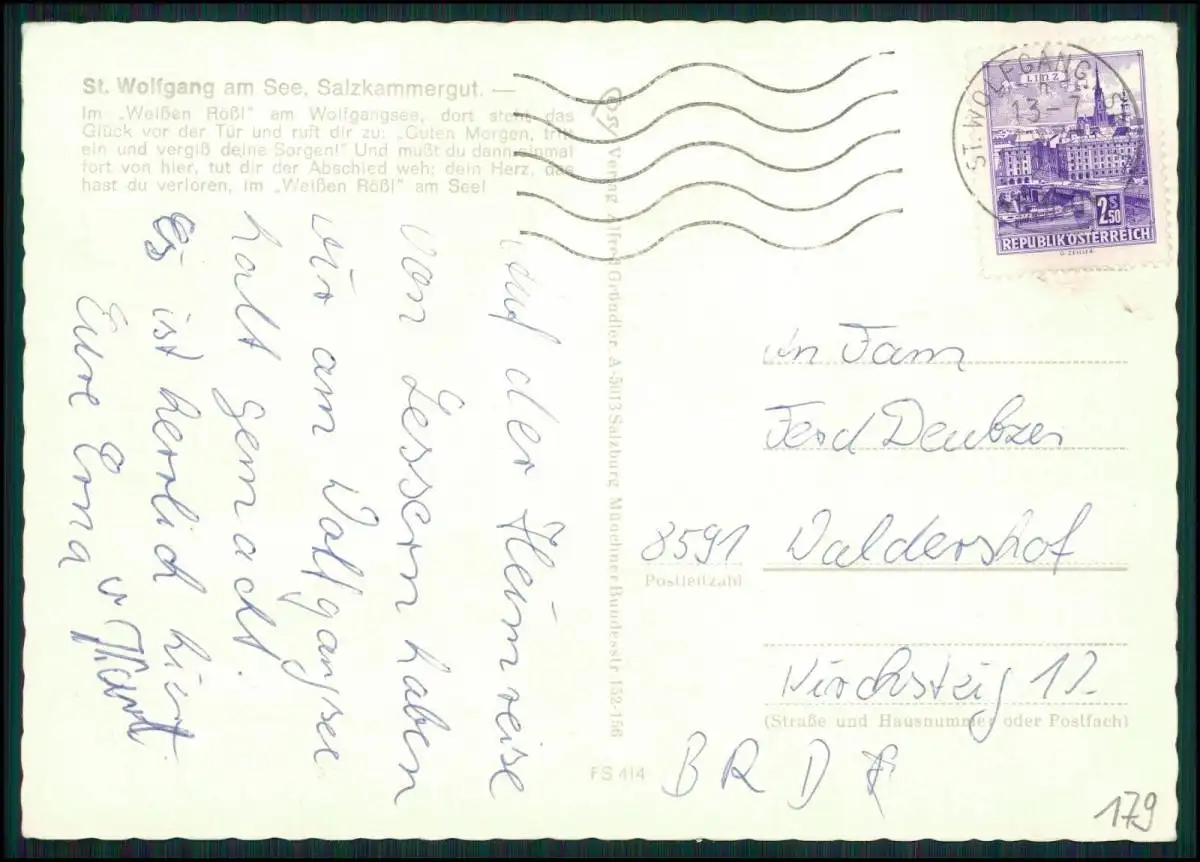 St. Wolfgang am See, Salzkammergut. —
Im „Weißen Rößl" am Wolfgangsee, dort steht das
Glück vor der Tür und ruft dir zu: „Guten Morgen, tritt
ein und vergiß deine Sorgen!" Und mußt du dann einmal
fort von hier, tut dir der Abschied weh; dein Herz, das
hast du verloren, im „Weißen Rößl" am See!
auf der Heimreise
von Lessern haben
wir am Wolfgangsee
halt gemacht.
Es ist herrlich hier
Eure Erna u
Verlag Alfred Gründler A-5013 Salzburg Münchner Bundesstr 152-156
FS 414
ST. WOLFGANG
13-7
LINZ
2.50 S
REPUBLIK ÖSTERREICH
An Fam
Ferd Deubzer
8591 Waldershof
Postleitzahl
Kirchsteig 12
(Straße und Hausnummer oder Postfach)
B R D
179